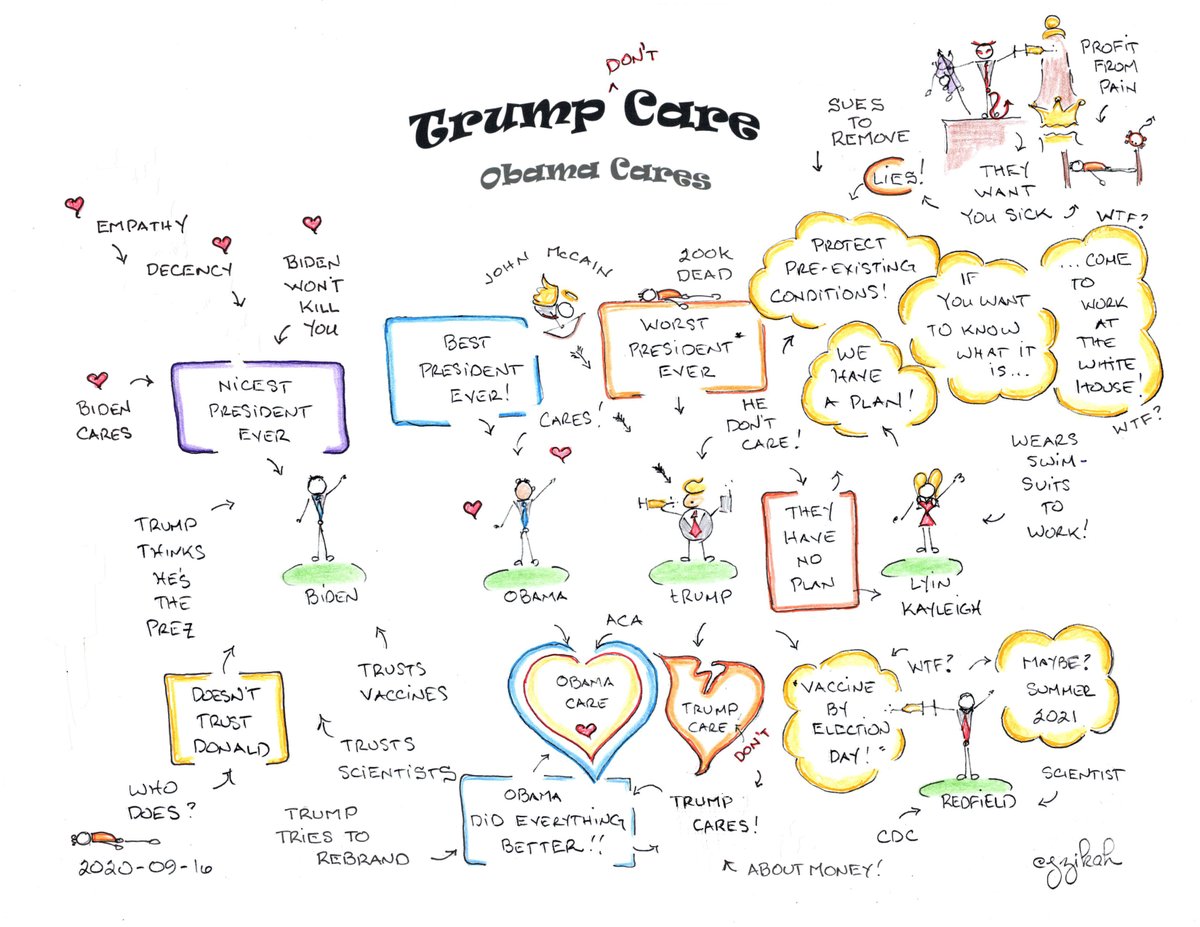 DON'T
^
Trump Care
Obama Cares
PROFIT
FROM
PAIN
SUES
TO
REMOVE
LIES!
THEY
WANT
YOU SICK
WTF?
EMPATHY
DECENCY
BIDEN
WON'T
KILL
YOU
JOHN McCAIN
200K
DEAD
PROTECT
PRE-EXISTING
CONDITIONS!
IF
YOU WANT
TO KNOW
WHAT IT
IS...
...COME
TO
WORK
AT
THE
WHITE
HOUSE!
WTF?
BEST
PRESIDENT
EVER!
WORST
PRESIDENT*
EVER
WE
HAVE
A PLAN!
NICEST
PRESIDENT
EVER
BIDEN
CARES
CARES!
HE
DON'T
CARE!
WEARS
SWIM-
SUITS
TO
WORK!
THEY
HAVE
NO
PLAN
TRUMP
THINKS
HE'S
THE
PREZ
BIDEN
OBAMA
tRUMP
LYIN
KAYLEIGH
ACA
TRUSTS
VACCINES
OBAMA
CARE
TRUMP
CARE
DON'T
"VACCINE
BY
ELECTION
DAY!"
WTF?
MAYBE?
SUMMER
2021
DOESN'T
TRUST
DONALD
TRUSTS
SCIENTISTS
WHO
DOES?
2020-09-16
TRUMP
TRIES TO
REBRAND
OBAMA
DID EVERYTHING
BETTER!!
TRUMP
CARES!
ABOUT MONEY!
REDFIELD
SCIENTIST
CDC
©gzikah